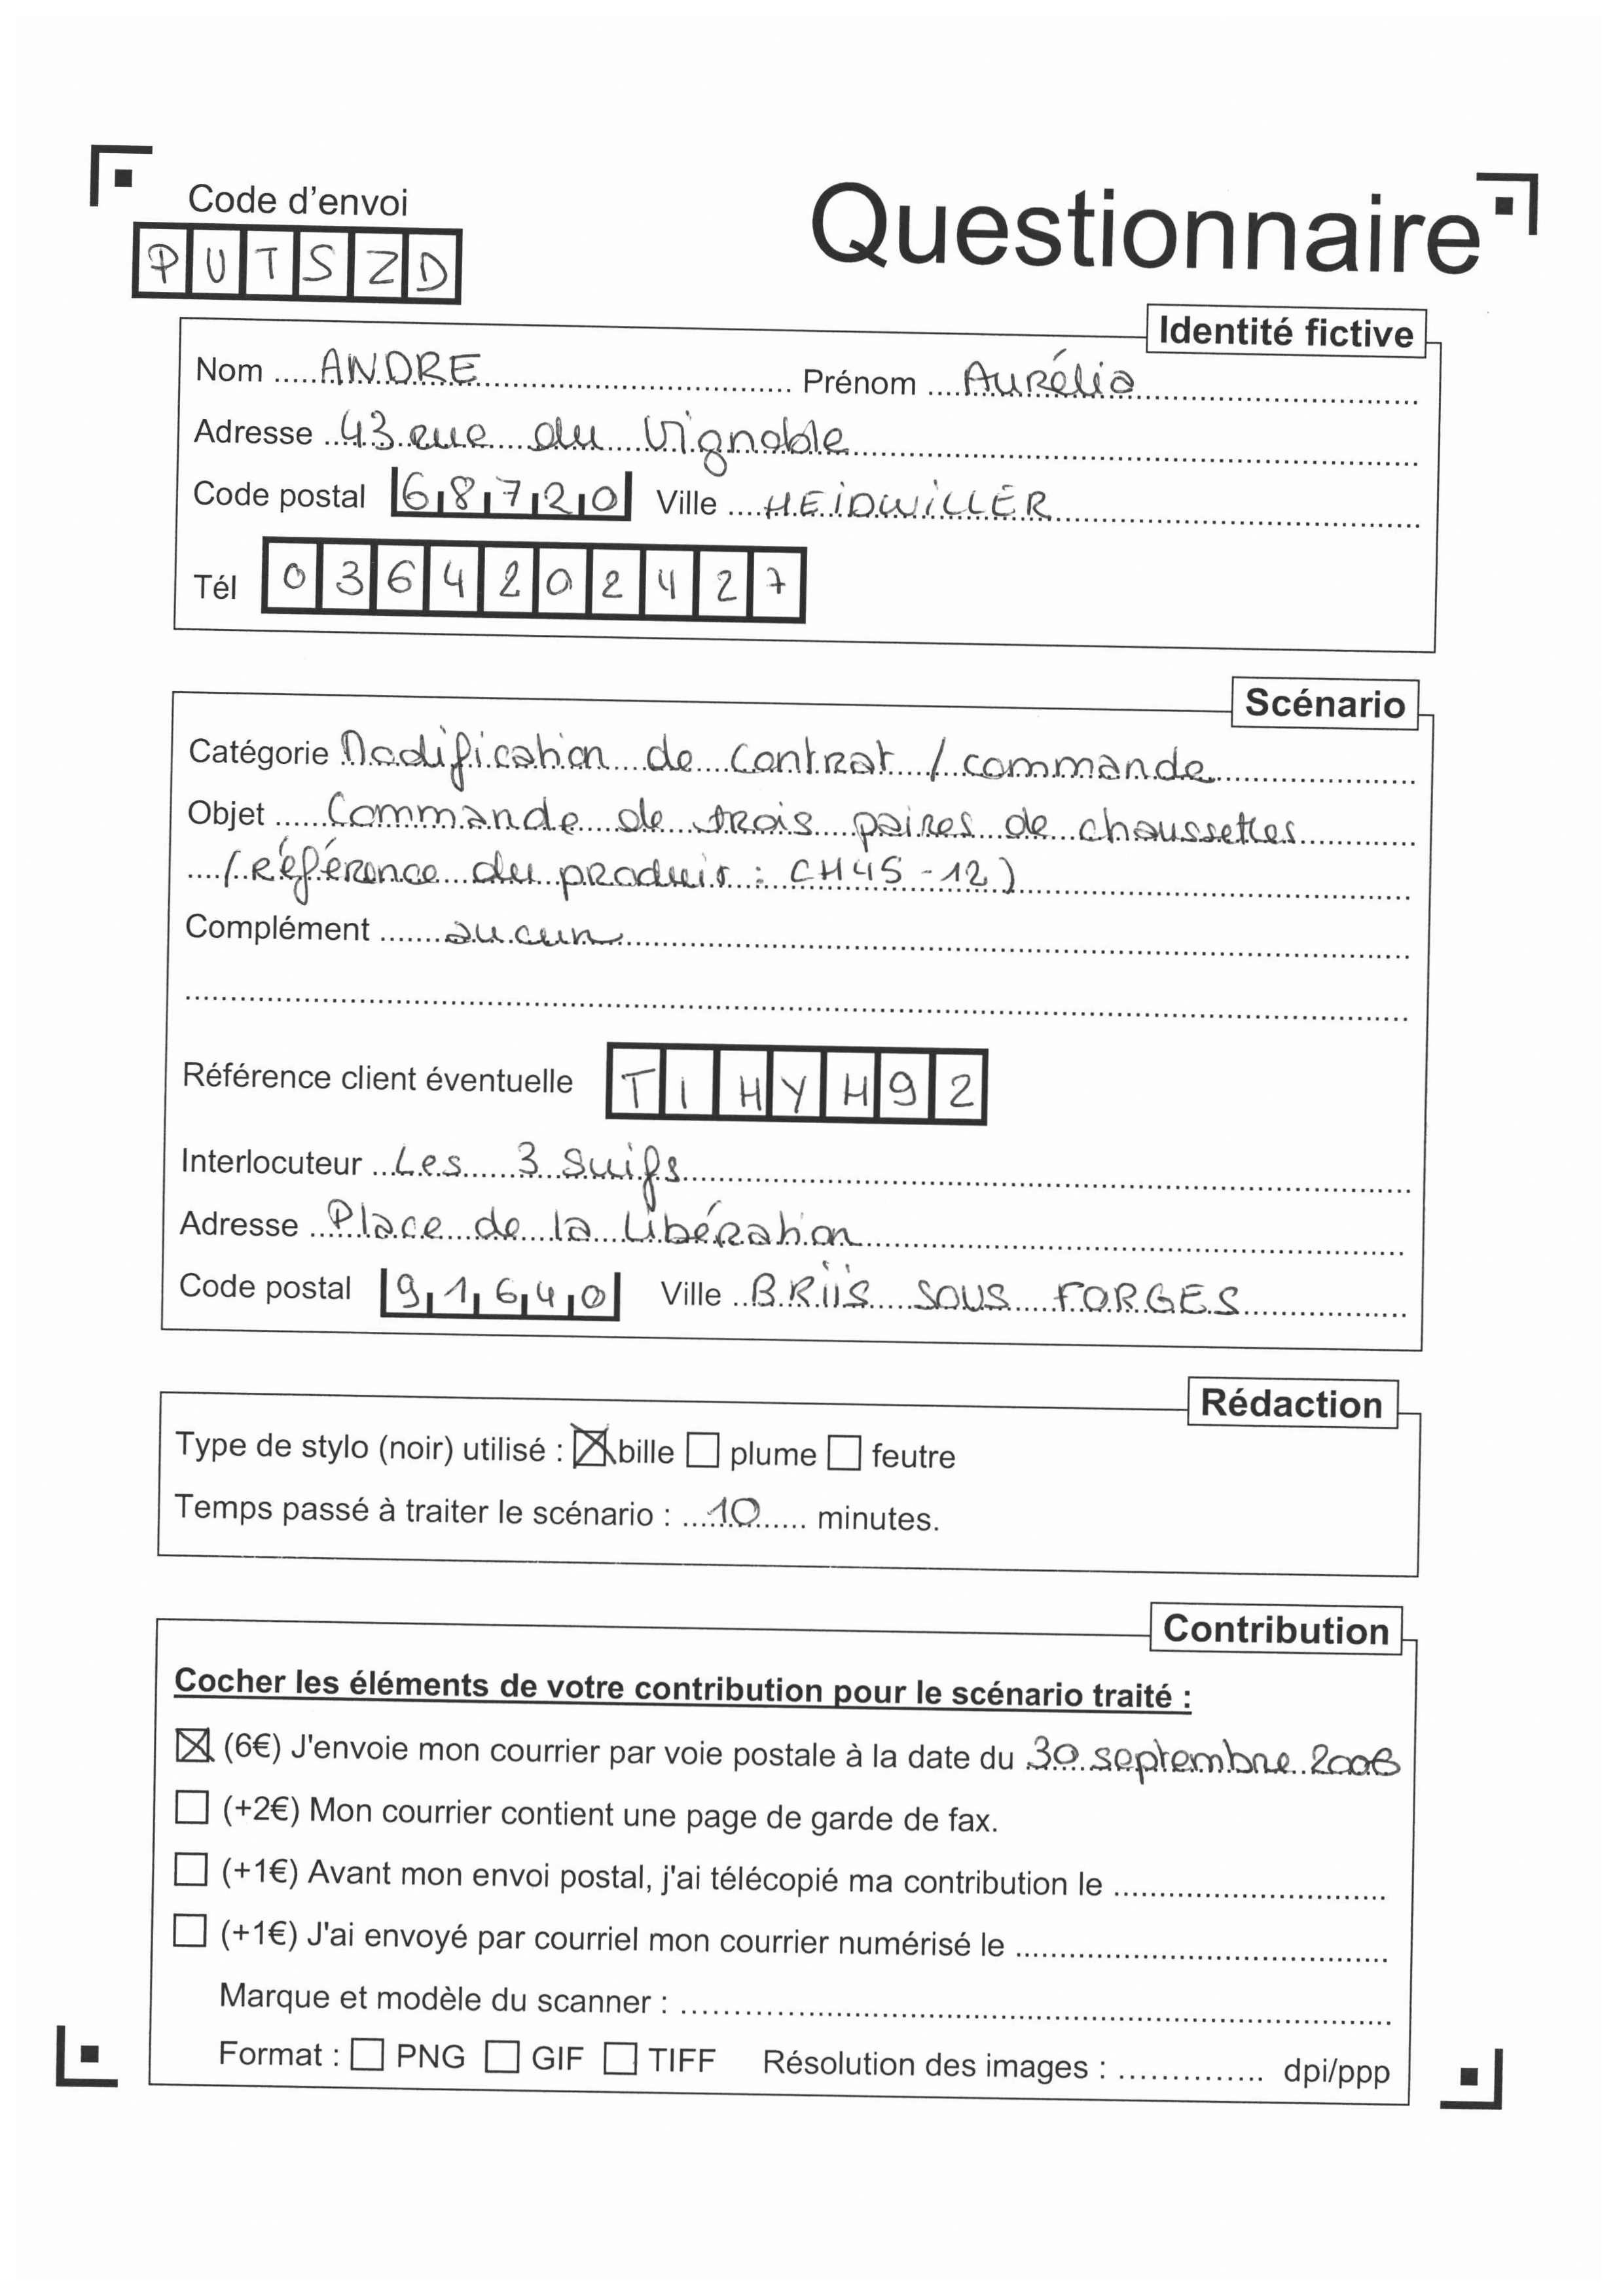 Code d'envoi
Questionnaire
PUTSZD
Identité fictive
Nom ANDRE Prénom Aurélia
Adresse 43 rue du Vignoble
Code postal 68720 Ville HEIDWILLER
Tél 0364202427
Scénario
Catégorie Modification de contrat / commande
Objet Commande de trois paires de chaussettes
(Référence du produit : CH45-12)
Complément aucun
Référence client éventuelle TIHYH92
Interlocuteur Les 3 Suifs
Adresse Place de la Libération
Code postal 91640 Ville BRIIS SOUS FORGES
Rédaction
Type de stylo (noir) utilisé : ☒ bille ☐ plume ☐ feutre
Temps passé à traiter le scénario : 10 minutes.
Contribution
Cocher les éléments de votre contribution pour le scénario traité :
☒ (6€) J'envoie mon courrier par voie postale à la date du 30 septembre 2006
☐ (+2€) Mon courrier contient une page de garde de fax.
☐ (+1€) Avant mon envoi postal, j'ai télécopié ma contribution le
☐ (+1€) J'ai envoyé par courriel mon courrier numérisé le
Marque et modèle du scanner :
Format : ☐ PNG ☐ GIF ☐ TIFF Résolution des images : dpi/ppp